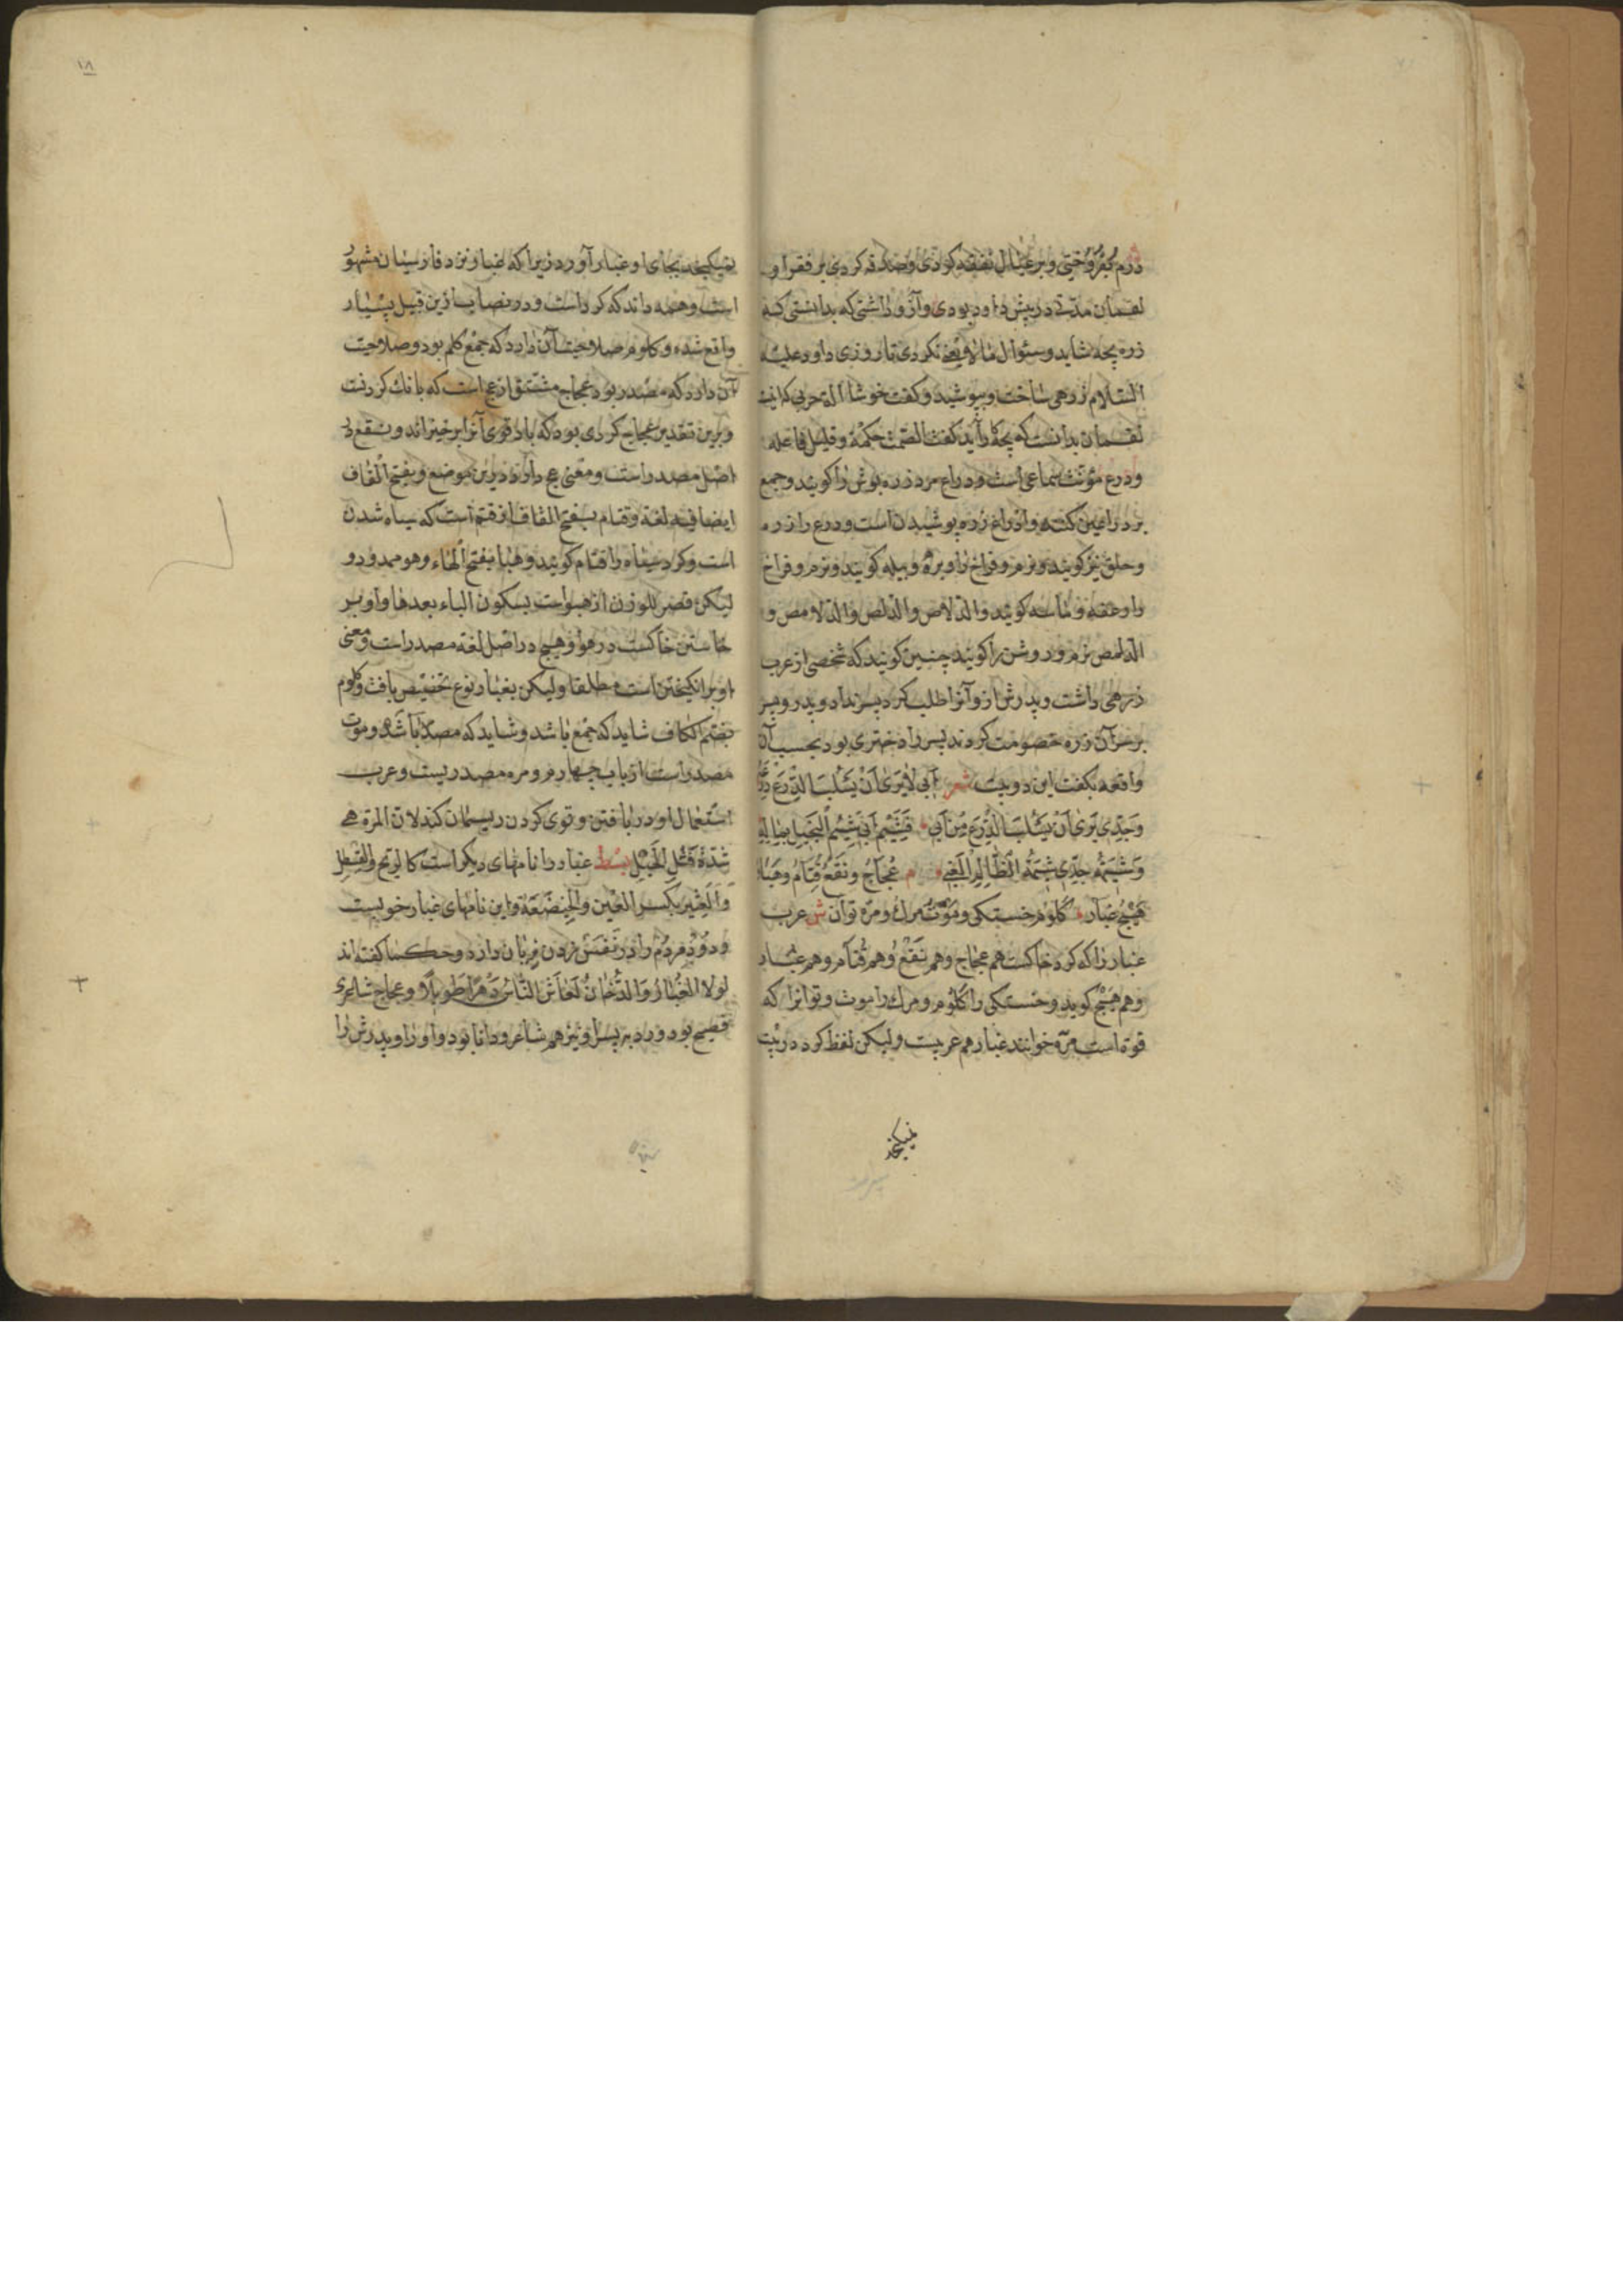 درم بفروختی و بر عیال نفقه کردی و صدقه کردی بر فقرا و
لقمان مدتی در پیش داود بودی و آرزو داشتی که بدانستی که
زره بچه شاید و سئوال مالا یعنی نکردی تا روزی داود علیه
السلام زرهی ساخت و بپوشید و کفت خوشا آلة حربی که اینست
لقمان بدانست که بچه رآید کفت الصمت حکمة و قلیل فاعله
و درع مؤنث سماعی است و دراع مرد زره پوش را کویند و جمع
بر دراعین کنند و ادراع زره پوشیدن است و درع را زرد
و حلق نیز کویند و نرم و فراخ را و بره و بیله کویند و نرم و فراخ
را و عقه و مأسه کویند والدلاص والدلص والدلامص و
الدلمص نرم و روشن را کویند چنین کویند که شخصی از عرب
زرهی داشت و پدرش از و آنرا طلب کرد پسر نداد و پدر و پسر
بر سر آن زره خصومت کردند پسر را دختری بود بحسب آن
واقعه بکفت این دو بیت شعر ابی لا یری ان یسلب الدرع
وجدی یری ان یسلب الدرع من ابی فشیم ابی شیم البخیل بماله
وشیمة جدی شیمة الظالم الغبی م عجاج و نقع قتام و هبا
هیج غبار کلوم خستکی و موت مرک و مرة توان ش عرب
غبار را که کرد خاکست هم عجاج و هم نقع و هم قتام و هم غبار
و هم هیج کوید و خستکی را کلوم و مرک را موت و توانرا که
قوة است مرة خوانند غبار هم عربیست ولیکن لفظ کرد در بیت
نمیکنجد
۱۸
نمیکنجد بجای او غبار آورد زیرا که غبار نزد فارسیان مشهور
است و همه دانند که کرد است و در نصاب ازین قبیل بسیار
واقع شده و کلوم صلاحیت آن دارد که جمع کلم بود و صلاحیت
آن دارد که مصدر بود عجاج مشتق از عج است که بانک کردنست
و برین تقدیر عجاج کردی بود که باد قوی آنرا برخیزاند و نقع در
اصل مصدر است و معنی عج دارد درین موضع و بفتح القاف
ایضا فیه لغة و قتام بفتح القاف از قتم است که سیاه شدن
است و کرد سیاه را قتام کویند و هبا بفتح الهاء و هو ممدود و
لیکن قصر للوزن از هبواست بسکون الباء بعدها واو بر
خاستن خاکست در هوا و هیج در اصل لغه مصدر است و معنی
او بر انکیختن است مطلقا ولیکن بغبار نوع تخصیص یافت و کلوم
بضم الکاف شاید که جمع باشد و شاید که مصدر باشد و موت
مصدر است از باب چهارم و مره مصدریست و عرب
استعمال او در تافتن و قوی کردن ریسمان کند لان المرة هی
شدة فتل الحبل بسط غبار را نامهای دیکر است کالرتج والقسطل
والعثیر بکسر العین والخیضعة و این نامهای غبار خوبست
و دود مردم را در نفس زدن زیان دارد و حکما کفته اند
لولا الغبار والدخان لعاش الناس دهرا طویلا و عجاج شاعری
فصیح بود و رد به پسر او نیز هم شاعر و دانا بود و او را و پدرش را